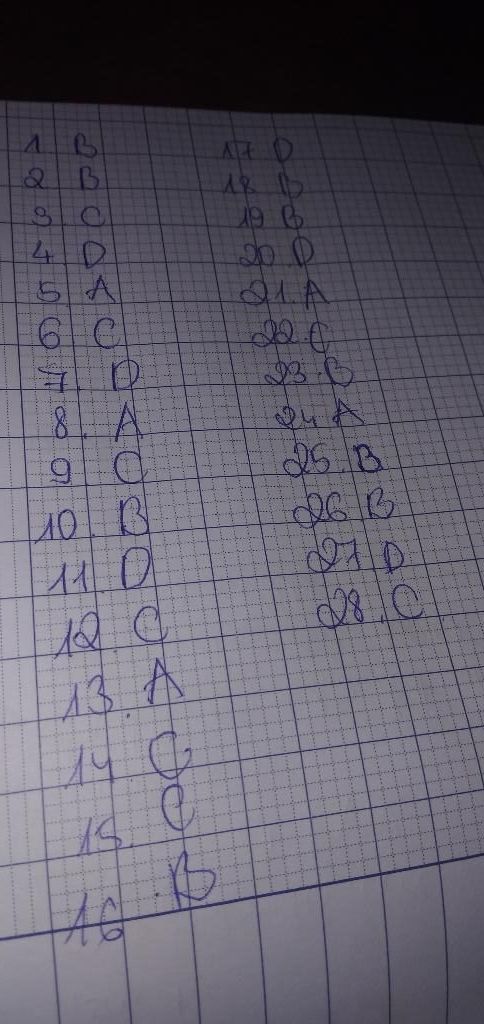 1 B
2 B
3 C
4 D
5 A
6 C
7. D
8. A
9 C
10. B
11. D
12. C
13. A
14 C
15. C
16 .B
17 D
18 B
19 B
20. D
21. A
22. C
23. B
24 A
25. B
26 B
27 D
28. C